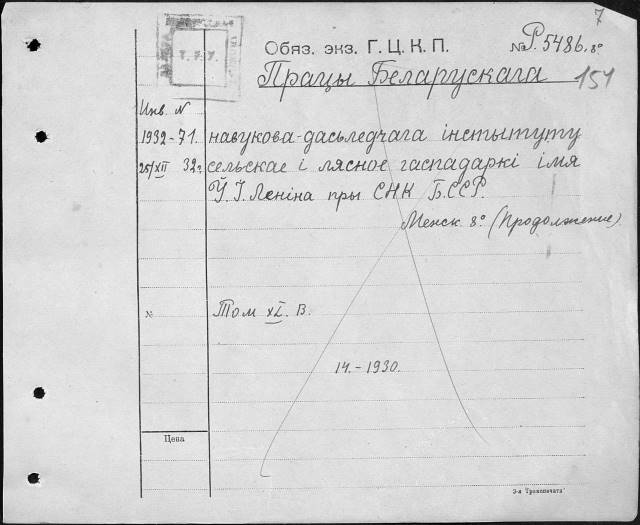 7
Обяз. экз. Г. Ц. К. П. № Р.5486. 8°
Працы Беларускага 154
Инв. N
1932-71. навукова-дасьледчага інстытуту
25/XII 32г. сельскае і лясное гаспадаркі імя
Ў. І. Леніна пры СНК БССР.
Менск 8° (Продолжение)
№ Том XI. В.
14.-1930.
Цена
3-я Транспечать